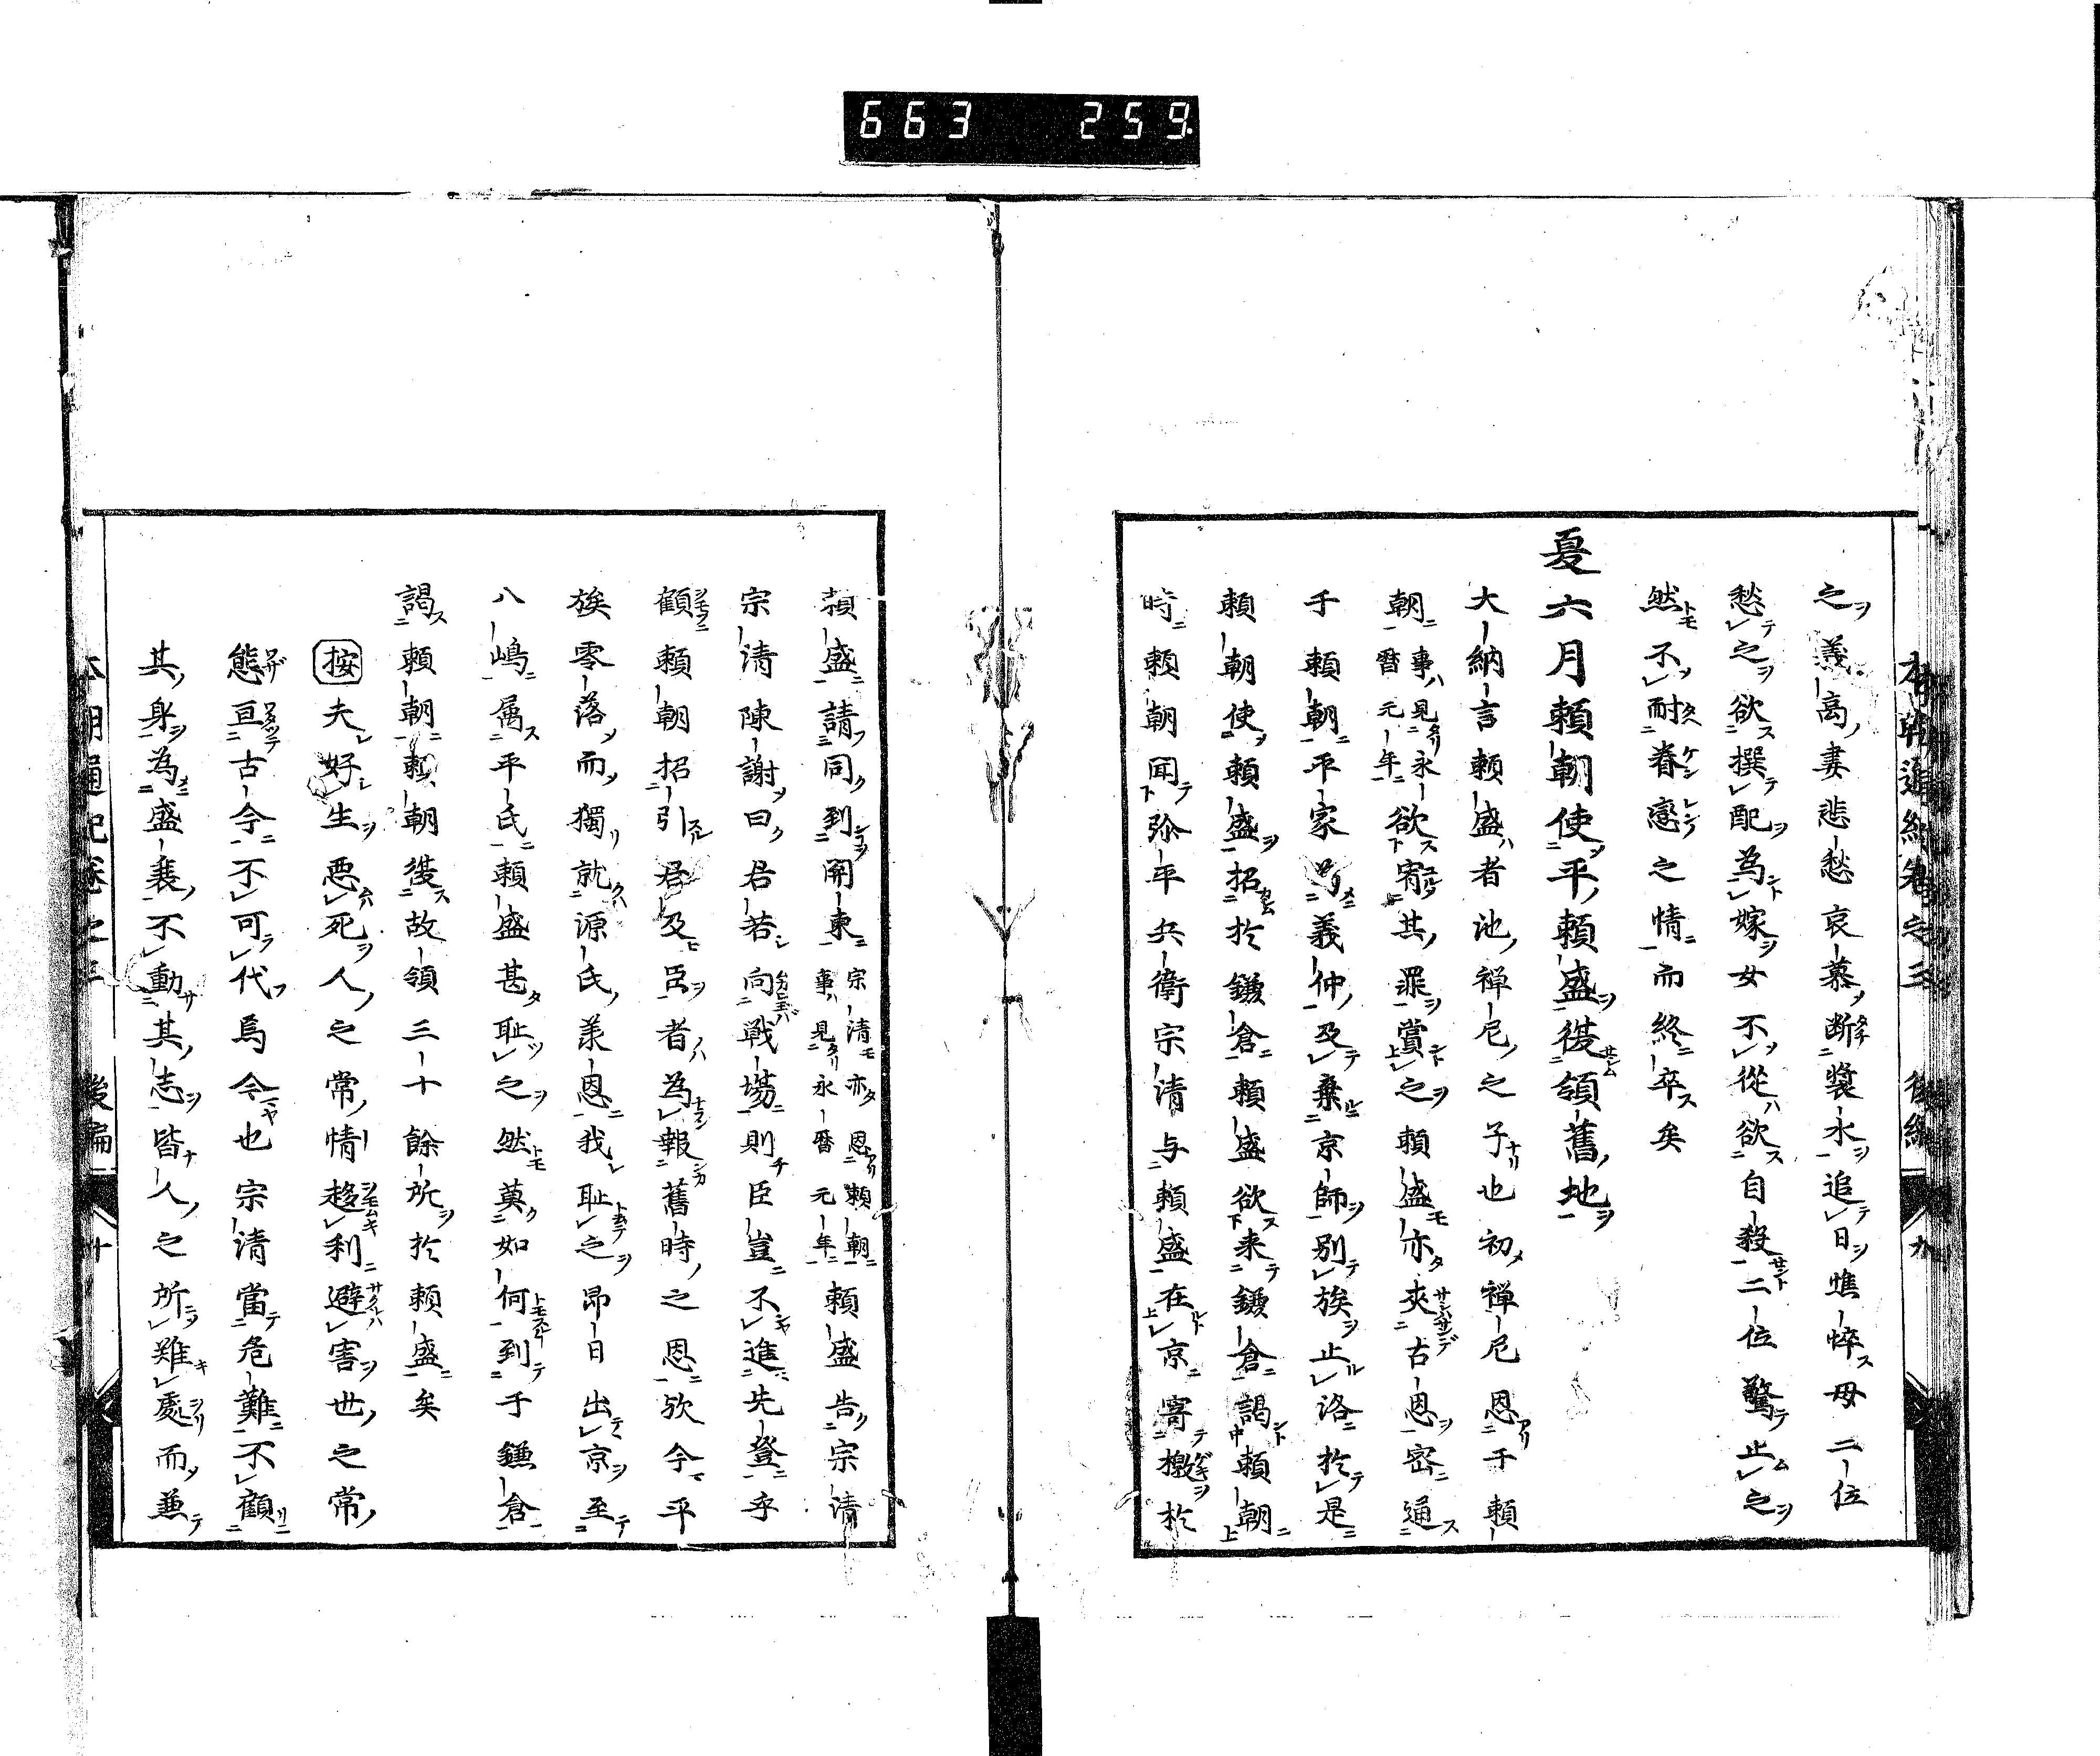 663 259
本朝通紀卷之三 後編 九
之義高妻悲愁哀慕断漿水追日憔悴母二位
愁之欲撰配為嫁女不從欲自殺二位驚止之
然不耐眷戀之情而終卒矣
夏六月賴朝使平賴盛復領舊地
大納言賴盛者池禅尼之子也初禅尼恩于賴
朝事見永曆元年欲宥其罪賞之賴盛亦夾古恩密通
于賴朝平家為義仲及棄京師別族止洛於是
賴朝使賴盛招於鎌倉賴盛欲来鎌倉謁賴朝
時賴朝聞弥平兵衛宗清与賴盛在京寄檄於
賴盛請同到関東宗清亦恩賴朝事見永曆元年賴盛告宗清
宗清陳謝曰君若向戦場則臣豈不進先登乎
顧賴朝招引君及臣者為報舊時之恩欤今平
族零落而獨就源氏恩我恥之即日出京至
八嶋属平氏賴盛甚恥之然莫如何到于鎌倉
謁賴朝賴朝復故領三十餘所於賴盛矣
按夫好生悪死人之常情趨利避害世之常
態亘古今不可代焉今也宗清當危難不顧
其身為盛衰不動其志皆人之所難處而兼
本朝通紀卷之三 後編 十